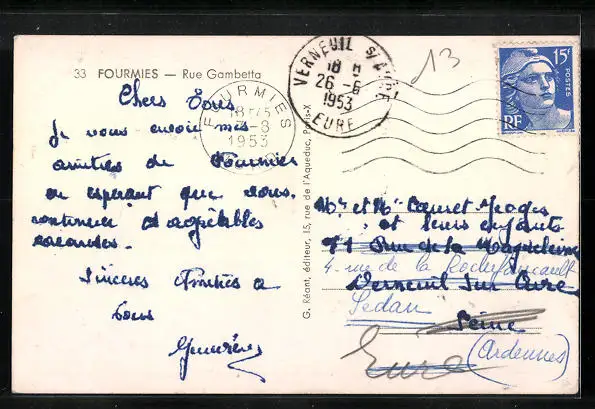 33 FOURMIES — Rue Gambetta
Chers Tous
Je vous envoie mes
amitiés de Fourmies
en espérant que vous
continuez d'agréables
vacances.
Sincères Amitiés à
tous
Geneviève
FOURMIES
18H15
-8
1953
VERNEUIL S/AVRE
18 H
26-8
1953
EURE
13
15F
POSTES
RF
G. Réant, éditeur, 15, rue de l'Aqueduc, Paris-X
Mr et Me
et leurs enfants
71 Rue de la Magdeleine
4. rue de la Rochefoucault
Verneuil sur Avre
Sedan
Seine
Eure
(Ardennes)